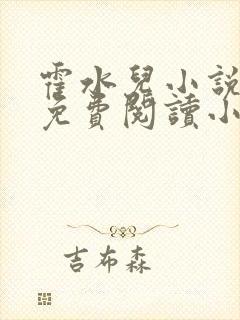 霍水兒小說
免費閱讀小
吉布森